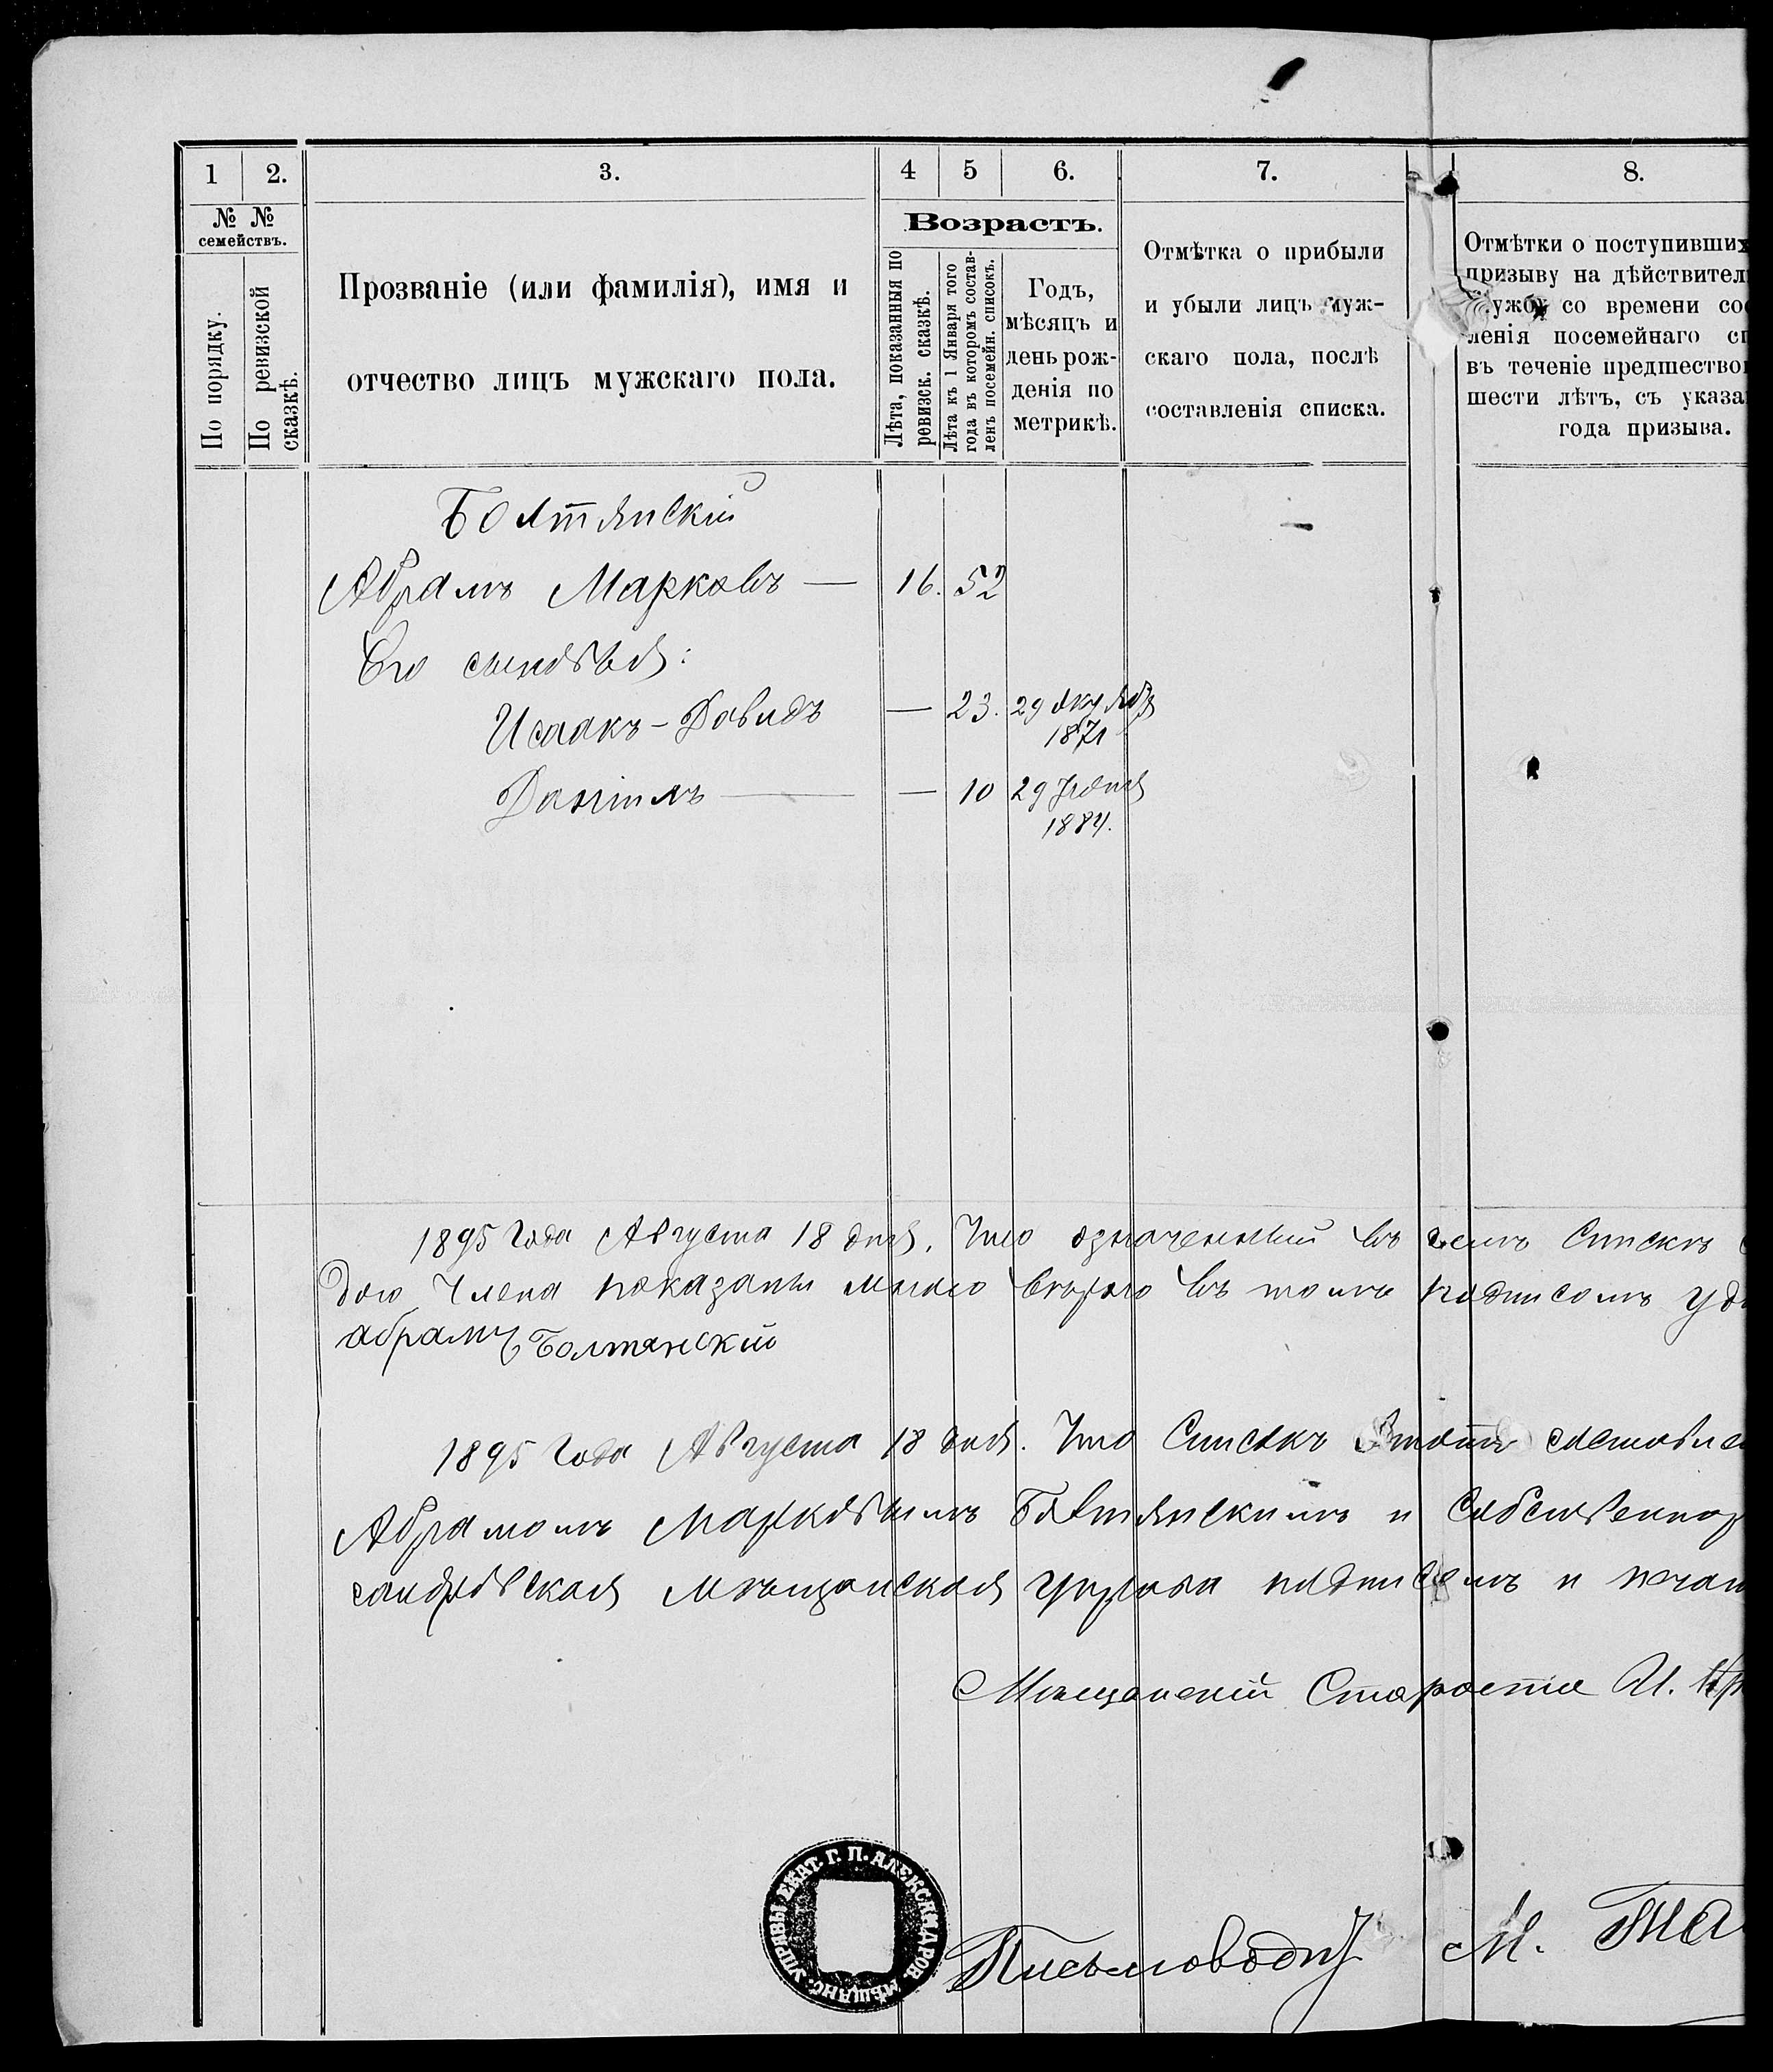 1
2.
3.
4
5
6.
7.
8.
№ №
семействъ.
По порядку.
По ревизской
сказкѣ.
Прозваніе (или фамилія), имя и
отчество лицъ мужскаго пола.
Возрастъ.
Лѣта, показанныя по
ревизск. сказкѣ.
Лѣта къ 1 Января того
года въ которомъ состав-
ленъ посемейн. списокъ.
Годъ,
мѣсяцъ и
день рож-
денія по
метрикѣ.
Отмѣтка о прибыли
и убыли лицъ муж-
скаго пола, послѣ
составленія списка.
Отмѣтки о поступивших
призыву на дѣйствител
службу со времени сос
ленія посемейнаго сп
въ теченіе предшество
шести лѣтъ, съ указа
года призыва.
Болтянскій
Абрамъ Марковъ — 16. 52
Его сыновья:
Исаакъ-Давидъ — 23. 29 октября
1871
Даніилъ — — 10 29 Іюня
1884.
1895 Года Августа 18 дня, Что означенный въ семъ Списки
члена показаны мною вѣрно въ томъ подписомъ удо
абрамъ Болтянскій
1895 Года Августа 18 дня. Что Списокъ этотъ составлен
Абрамомъ Марковымъ Болтянскимъ и Собственнор
сандровская Мѣщанская управа подписомъ и печат
Мѣщанскій Староста И. Кр
УПРАВЫ ЕКАТ. Г. П. АЛЕКСАНДРОВ. МѢЩАНС.
Письмоводит М. Та